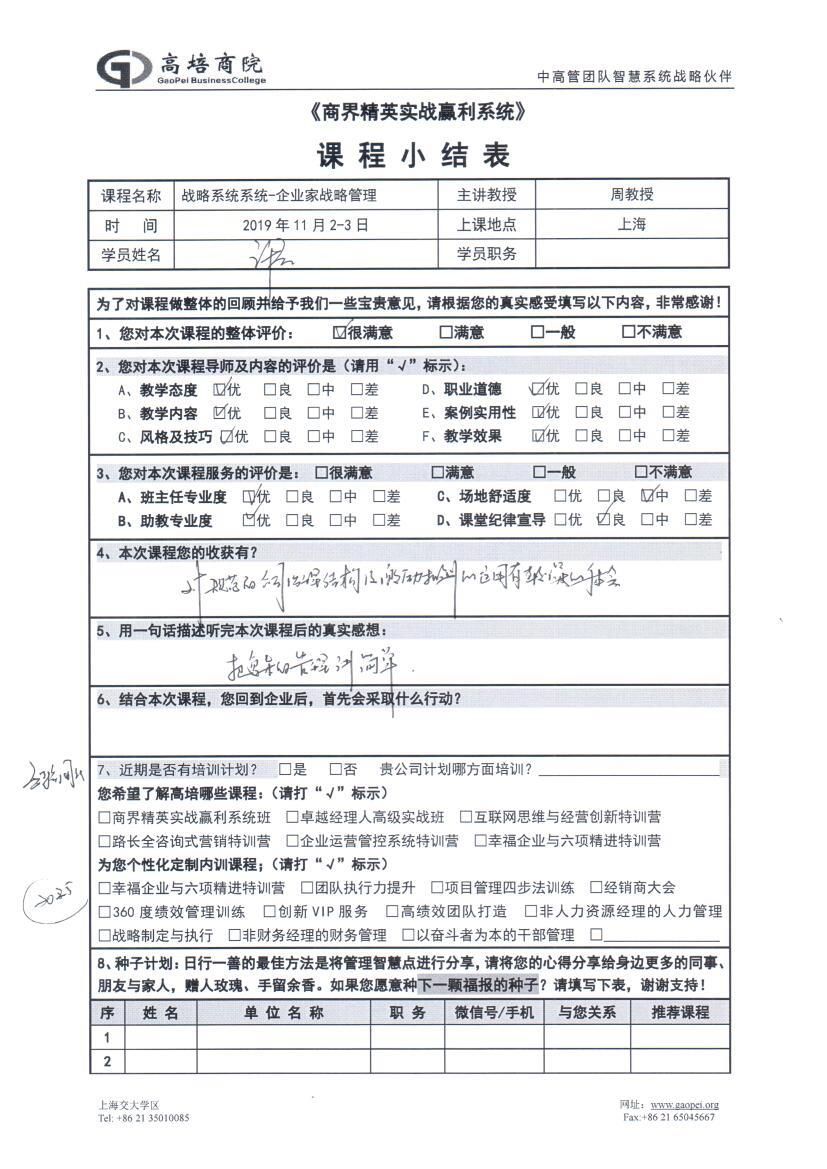 高培商院
GaoPei BusinessCollege
中高管团队智慧系统战略伙伴
《商界精英实战赢利系统》
课程小结表
课程名称 战略系统系统-企业家战略管理 主讲教授 周教授
时 间 2019 年 11 月 2-3 日 上课地点 上海
学员姓名 学员职务
为了对课程做整体的回顾并给予我们一些宝贵意见,请根据您的真实感受填写以下内容,非常感谢!
1、您对本次课程的整体评价: ☑很满意 □满意 □一般 □不满意
2、您对本次课程导师及内容的评价是(请用“√”标示):
A、教学态度 ☑优 □良 □中 □差 D、职业道德 ☑优 □良 □中 □差
B、教学内容 ☑优 □良 □中 □差 E、案例实用性 ☑优 □良 □中 □差
C、风格及技巧 ☑优 □良 □中 □差 F、教学效果 ☑优 □良 □中 □差
3、您对本次课程服务的评价是: □很满意 □满意 □一般 □不满意
A、班主任专业度 ☑优 □良 □中 □差 C、场地舒适度 □优 □良 ☑中 □差
B、助教专业度 ☑优 □良 □中 □差 D、课堂纪律宣导 □优 ☑良 □中 □差
4、本次课程您的收获有?
5、用一句话描述听完本次课程后的真实感想:
6、结合本次课程,您回到企业后,首先会采取什么行动?
7、近期是否有培训计划? □是 □否 贵公司计划哪方面培训?
您希望了解高培哪些课程:(请打“√”标示)
□商界精英实战赢利系统班 □卓越经理人高级实战班 □互联网思维与经营创新特训营
□路长全咨询式营销特训营 □企业运营管控系统特训营 □幸福企业与六项精进特训营
为您个性化定制内训课程;(请打“√”标示)
□幸福企业与六项精进特训营 □团队执行力提升 □项目管理四步法训练 □经销商大会
□360 度绩效管理训练 □创新 VIP 服务 □高绩效团队打造 □非人力资源经理的人力管理
□战略制定与执行 □非财务经理的财务管理 □以奋斗者为本的干部管理 □
8、种子计划:日行一善的最佳方法是将管理智慧点进行分享,请将您的心得分享给身边更多的同事、
朋友与家人,赠人玫瑰、手留余香。如果您愿意种下一颗福报的种子?请填写下表,谢谢支持!
序 姓 名 单 位 名 称 职 务 微信号/手机 与您关系 推荐课程
1
2
上海交大学区
Tel: +86 21 35010085
网址: www.gaopei.org
Fax:+86 21 65045667